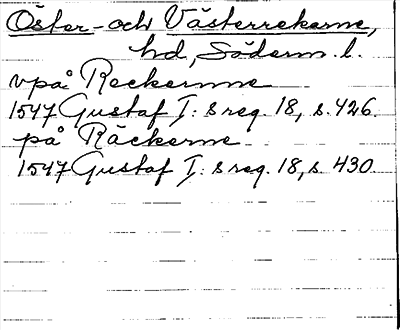 Öster- och Västerrekarne,
hd, Söderm. l.
vpå Reckermne
1547 Gustaf I: s reg. 18, s. 426.
på Räckerne
1547 Gustaf I: s reg. 18, s. 430.